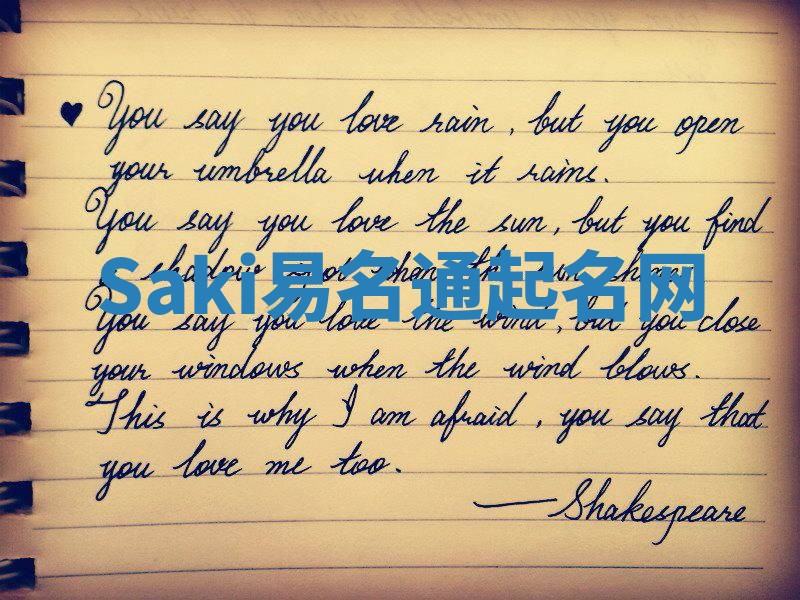 ♥ You say you love rain, but you open
your umbrella when it rains.
You say you love the sun, but you find
a shadow spot when the sun shines.
Saki易名通起名网
You say you love the wind, but you close
your windows when the wind blows.
This is why I am afraid, you say that
you love me too.
—Shakespeare